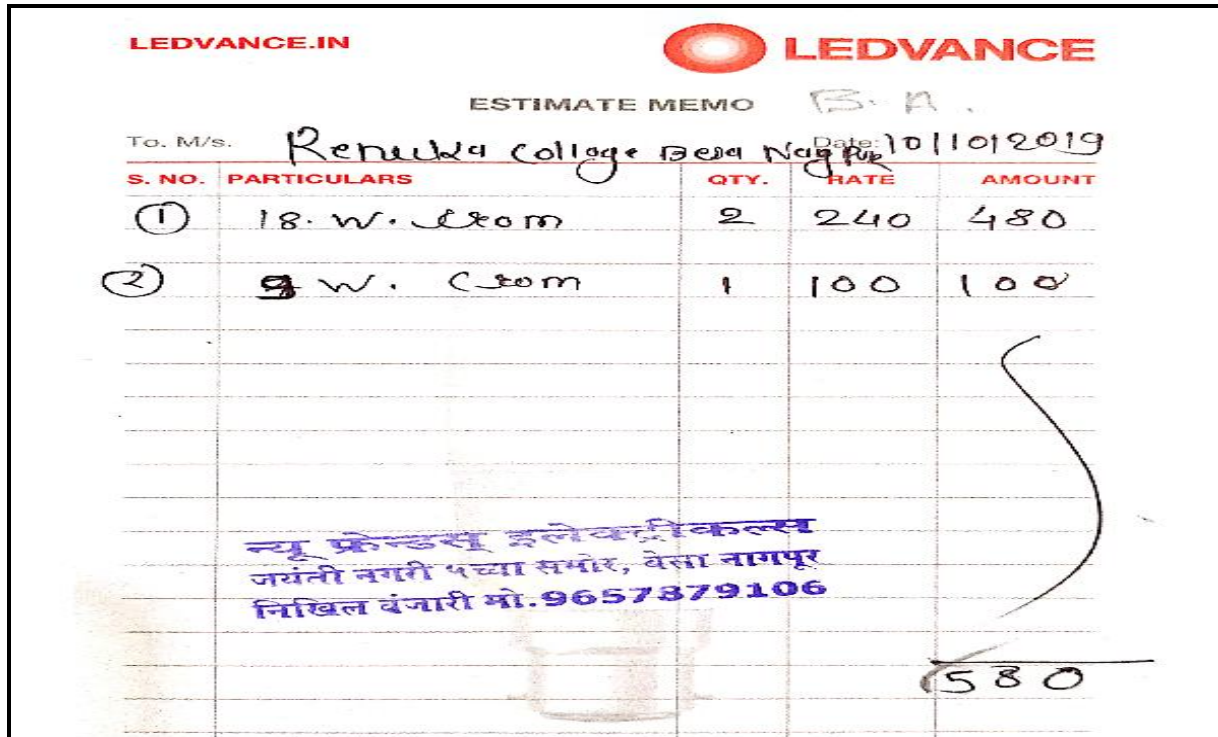 LEDVANCE.IN
LEDVANCE
ESTIMATE MEMO B. A.
To. M/s. Renuka College Besa Nagpur Date: 10/10/2019
S. NO. PARTICULARS QTY. RATE AMOUNT
1 18. W. Crom 2 240 480
2 9 W. Crom 1 100 100
न्यू फ्रेन्डस् इलेक्ट्रीकल्स
जयंती नगरी ५ च्या समोर, बेसा नागपूर
निखिल वंजारी मो.9657879106
580